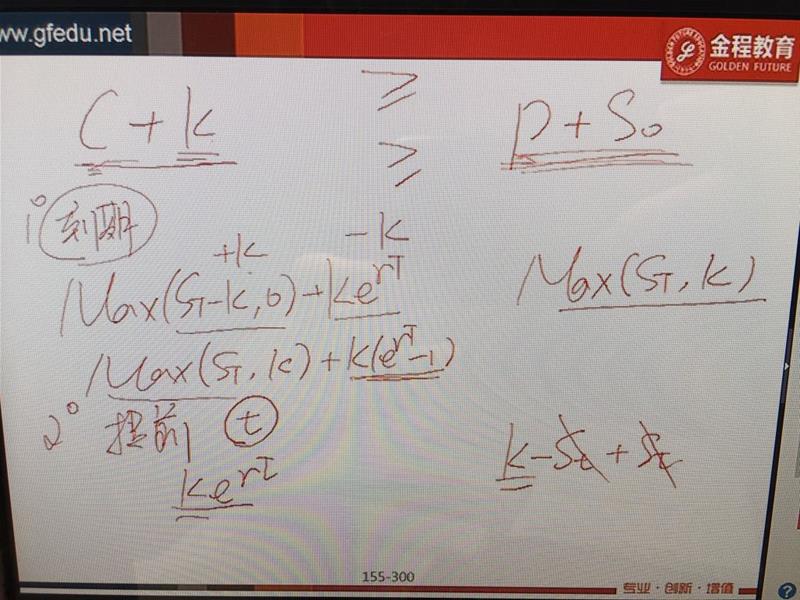 ww.gfedu.net
金程教育
GOLDEN FUTURE
C + K ≥ P + S₀
≥
1° 到期
+K -K
Max(S_T-K,0)+Ke^{rT} Max(S_T,K)
Max(S_T,K)+K(e^{rT}-1)
2° 提前 t
K-S_t+S_t
155-300
专业·创新·增值